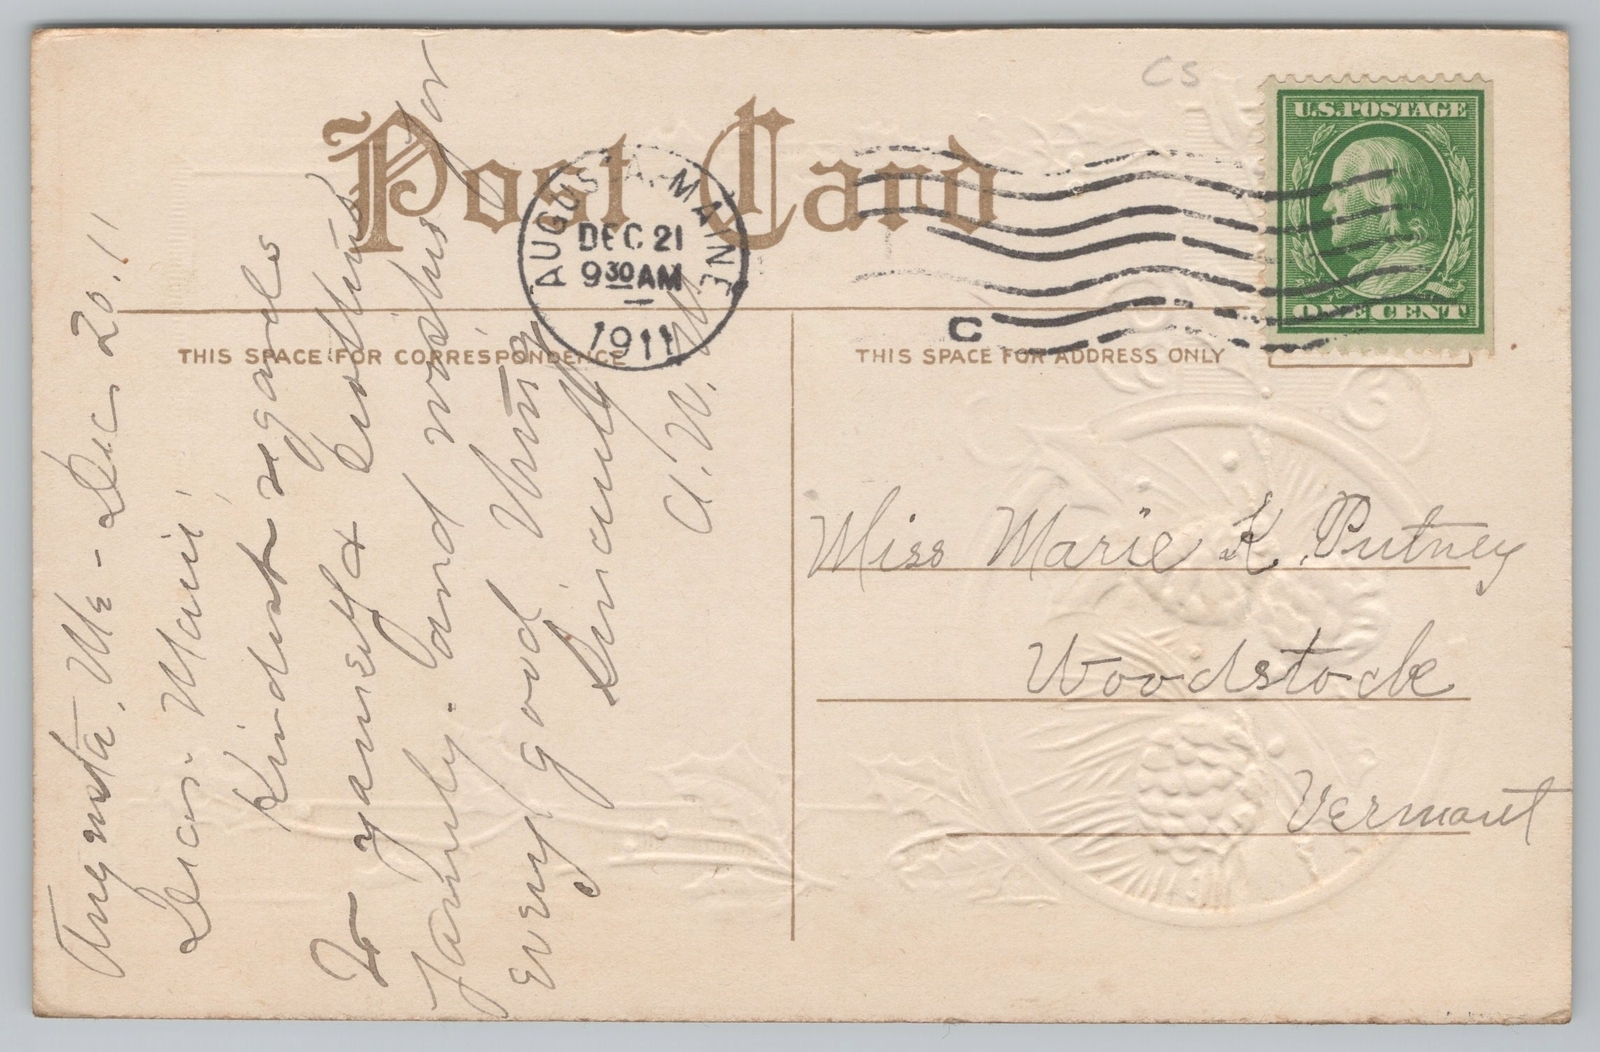 Post Card
THIS SPACE FOR CORRESPONDENCE
THIS SPACE FOR ADDRESS ONLY
CS
U.S. POSTAGE
ONE CENT
AUGUSTA, MAINE
DEC 21
9 30 AM
1911
C
Augusta, Me - Dec 20. 11
Dear Marie;
Kindest regards
to yourself &
family. and wishes for
every good thing
Sincerely
A. W.
Miss Marie K. Putney
Woodstock
Vermont